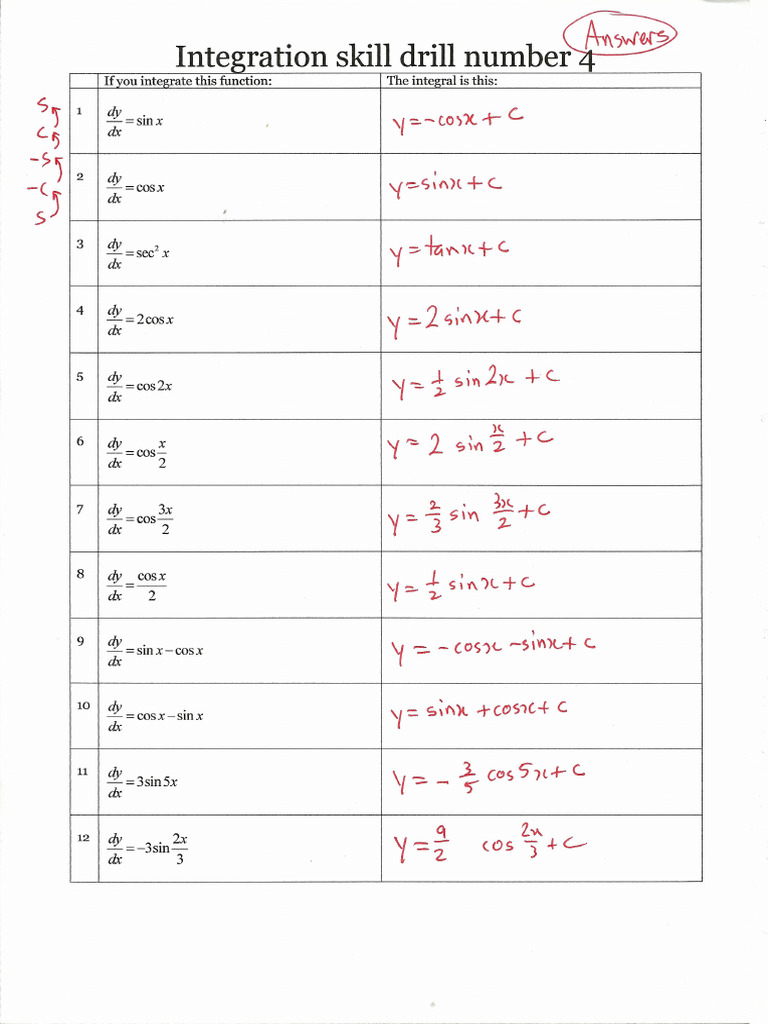 Answers
Integration skill drill number 4
If you integrate this function: The integral is this:
S
C
-S
-C
S
1 dy/dx = sin x y = -cosx + C
2 dy/dx = cos x y = sinx + C
3 dy/dx = sec² x y = tanx + C
4 dy/dx = 2 cos x y = 2 sinx + C
5 dy/dx = cos 2x y = 1/2 sin 2x + C
6 dy/dx = cos x/2 y = 2 sin x/2 + C
7 dy/dx = cos 3x/2 y = 2/3 sin 3x/2 + C
8 dy/dx = cos x/2 y = 1/2 sinx + C
9 dy/dx = sin x - cos x y = -cosx - sinx + C
10 dy/dx = cos x - sin x y = sinx + cosx + C
11 dy/dx = 3 sin 5x y = - 3/5 cos 5x + C
12 dy/dx = -3 sin 2x/3 y = 9/2 cos 2x/3 + C